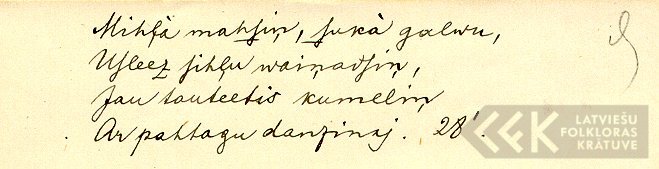 Mihļà mahsiņ, sukà galwu,
Usleez sihļu wainadsiņ,
Jau tauteetis kumeliņ
Ar pahtagu danzinaj. 28'.
LATVIEŠU
FOLKLORAS
KRĀTUVE